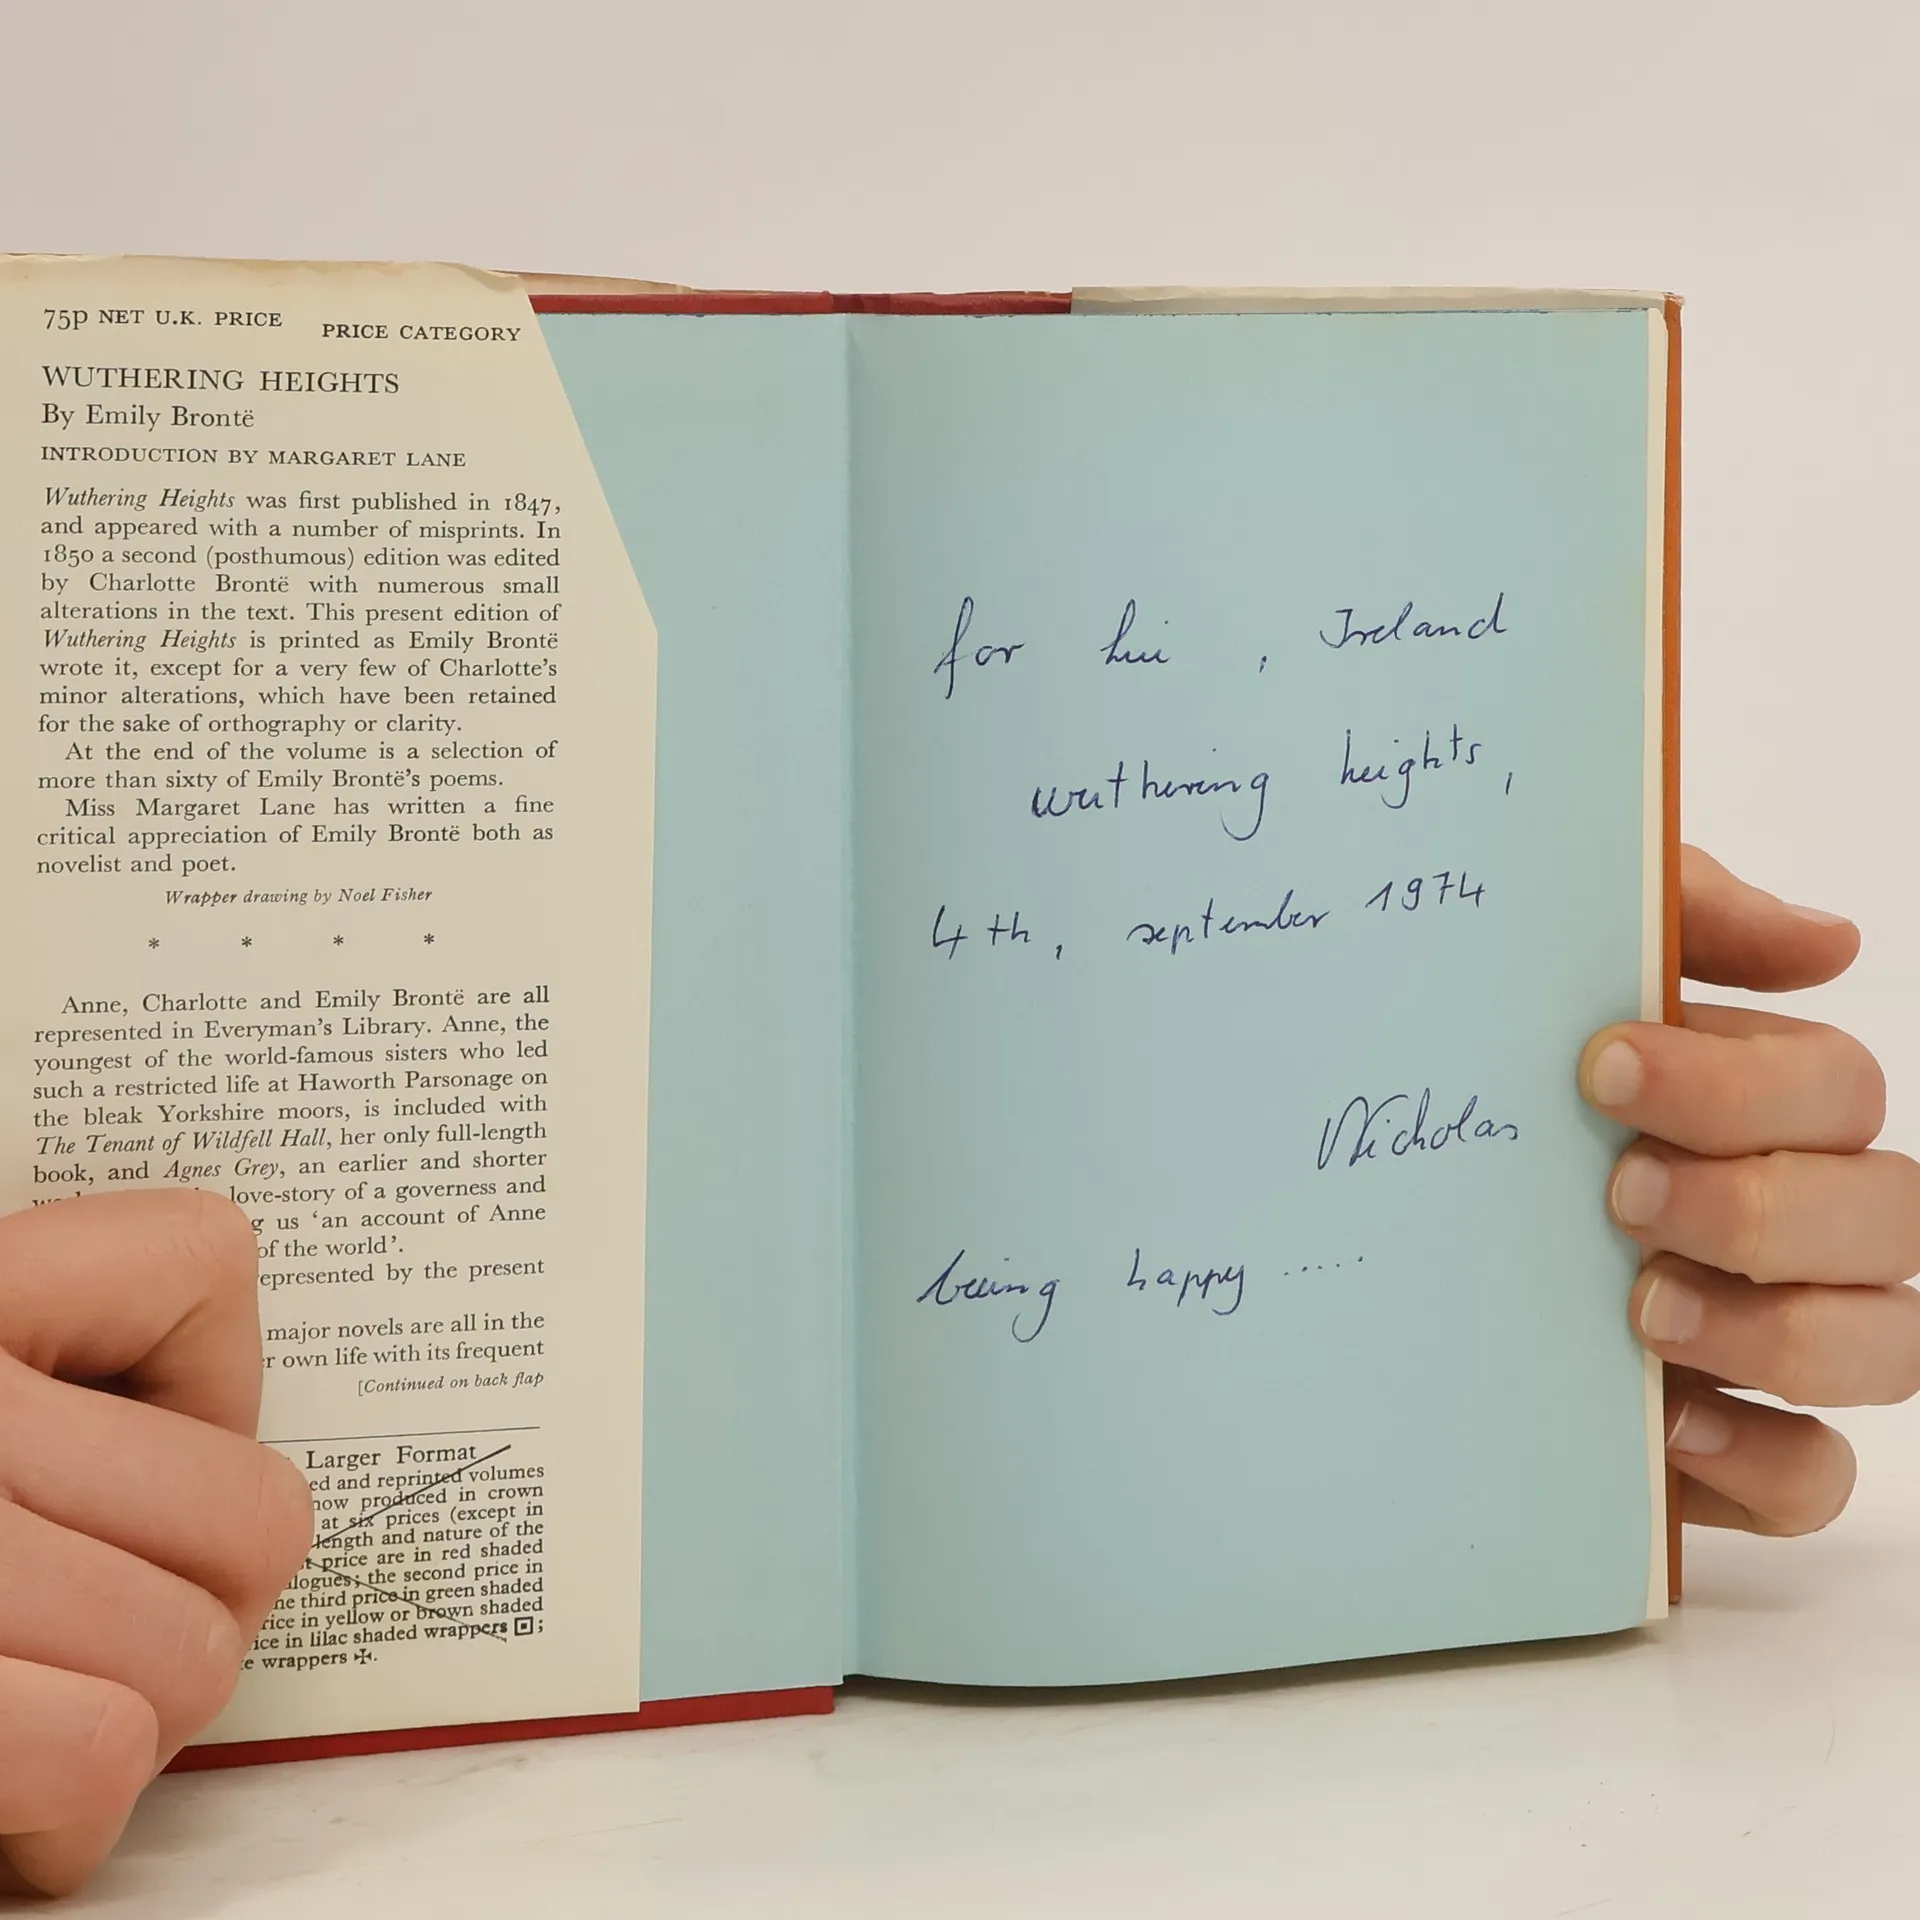 75p NET U.K. PRICE
PRICE CATEGORY
WUTHERING HEIGHTS
By Emily Brontë
INTRODUCTION BY MARGARET LANE
Wuthering Heights was first published in 1847,
and appeared with a number of misprints. In
1850 a second (posthumous) edition was edited
by Charlotte Brontë with numerous small
alterations in the text. This present edition of
Wuthering Heights is printed as Emily Brontë
wrote it, except for a very few of Charlotte's
minor alterations, which have been retained
for the sake of orthography or clarity.
At the end of the volume is a selection of
more than sixty of Emily Brontë's poems.
Miss Margaret Lane has written a fine
critical appreciation of Emily Brontë both as
novelist and poet.
Wrapper drawing by Noel Fisher
* * * *
Anne, Charlotte and Emily Brontë are all
represented in Everyman's Library. Anne, the
youngest of the world-famous sisters who led
such a restricted life at Haworth Parsonage on
the bleak Yorkshire moors, is included with
The Tenant of Wildfell Hall, her only full-length
book, and Agnes Grey, an earlier and shorter
love-story of a governess and
us 'an account of Anne
of the world'.
represented by the present
major novels are all in the
own life with its frequent
[Continued on back flap
Larger Format
and reprinted volumes
now produced in crown
at six prices (except in
length and nature of the
price are in red shaded
the second price in
third price in green shaded
in yellow or brown shaded
in lilac shaded wrappers ;
wrappers ✠.
for , Ireland
wuthering heights,
4th, september 1974
Nicholas
being happy .....